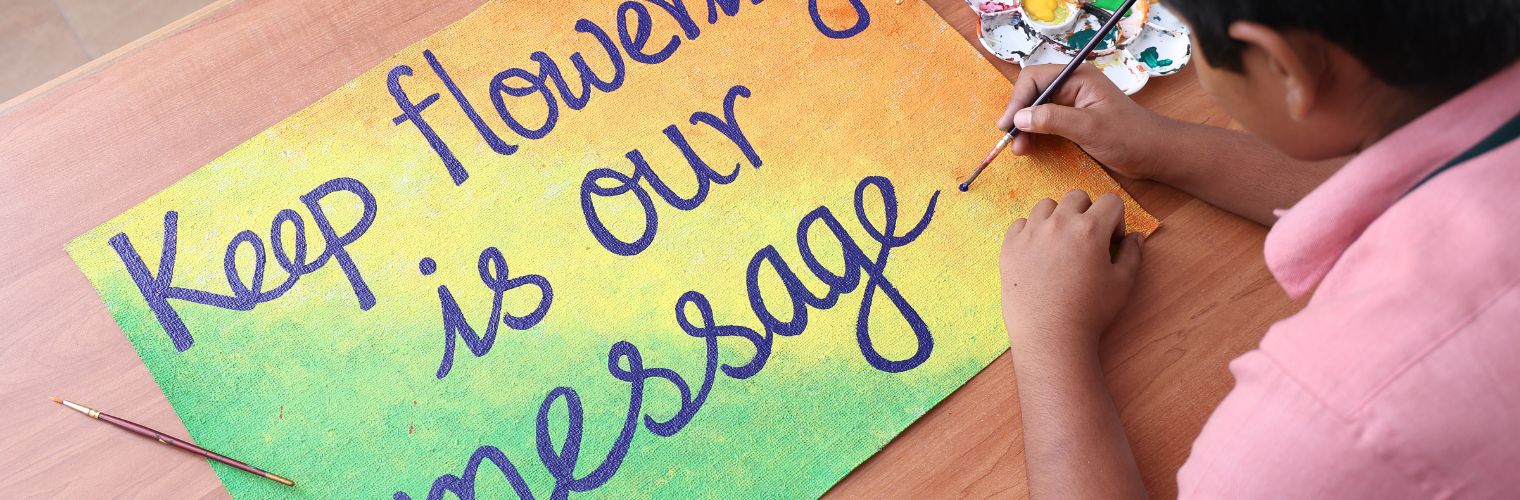 Keep flowering
is our
message